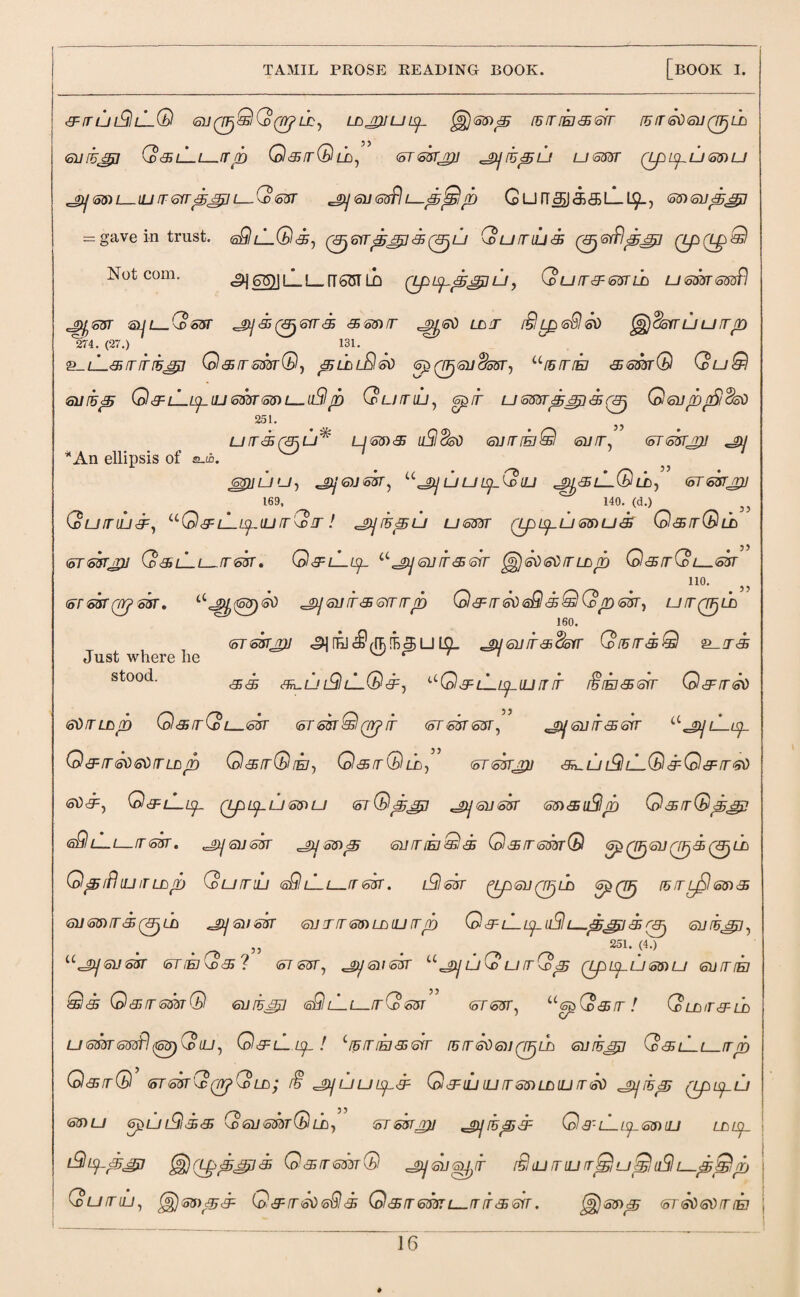 TAMIL PROSE READING BOOK. [BOOK I.
சாப்பிட்டு வருகிறோம், மறுபடி இதை நாங்கள் நால்வரும்
வந்து கேட்டாற் கொடும்,” என்று அந்தப் பண முடிப்பை
அடையாளத்துடனே அவனிடத்திற் போதுக்கட்டி, வைத்து
= gave in trust. விட்டுக், குளத்துக்குப் போய்க் குளித்து முழுகி
Not com. அனுட்டானம் முடித்துப், போசனம் பண்ணி
ஆன உடனே அக்குளக் கரை ஆல் மர நிழலில் இளைப்பாற
274. (27.) 131.
உட்கார்ந்து கொண்டு, தம்மில் ஒருவனை, “நாங் கண்டு பேசி
வந்த செட்டியண்டையிற் போய், ஓர் பணத்துக்கு வெற்றிலை
251.
பாக்குப்* புகை யிலை வாங்கி வா,” என்று அ
*An ellipsis of உம்.
னுப்ப, அவன், “அப்படியே ஆகட்டும்,” என்று
169, 140. (d.)
போய்ச், “செட்டியாரே! அந்தப் பண முடிப்பைக் கொடும்”
என்று கேட்டான். செட்டி “அவர்கள் இல்லாமற் கொடேன்”
110.
என்றான். “ஆனால் அவர்களாற் சொல்விக்கிறேன், பாரும்”
160.
என்று அங்கிருந்தபடி அவர்களை நோக்கி உரக்
Just where he
stood. கக் கூப்பிட்டுச், “செட்டியார் நீங்கள் சொல்
லாமற் கொடேன் என்கிறார் என்ன,” அவர்கள் “அட்டி
சொல்லாமற் கொடுங், கொடும்,” என்று கூப்பிட்டுச்சொல்
லச், செட்டி முடிப்பை எடுத்து அவன் கையிற் கொடுத்து
விட்டான். அவன் அதை வாங்கிக் கொண்டு ஒருவருக்கும்
தெரியாமற் போய் விட்டான். பின் மூவரும் ஒரு நாழிகை
வரைக்கும் அவன் வாராமையாற் செட்டியிடத்துக்கு வந்து,
251. (4.)
“அவன் எங்கே?” என, அவன் “அப்போதே முடிப்பை வாங்
கிக் கொண்டு வந்து விட்டானே” என, “ஓகோ! மோசம்
பண்ணினையே, செட்டி! ‘நாங்கள் நால்வரும் வந்து கேட்டாற்
கொடு’ என்றோமே; நீ அப்படிச் செய்யாமையால் அந்த முடிப்
பை ஒப்பிக்க வேண்டும்,” என்று அந்தச் செட்டியை மடி
பிடித்து இழுத்துக் கொண்டு அவ்வூர் நியாயாதிபதியிடத்திற்
போய், இதைச் சொல்விக் கொண்டார்கள். இதை எல்லாங்
16